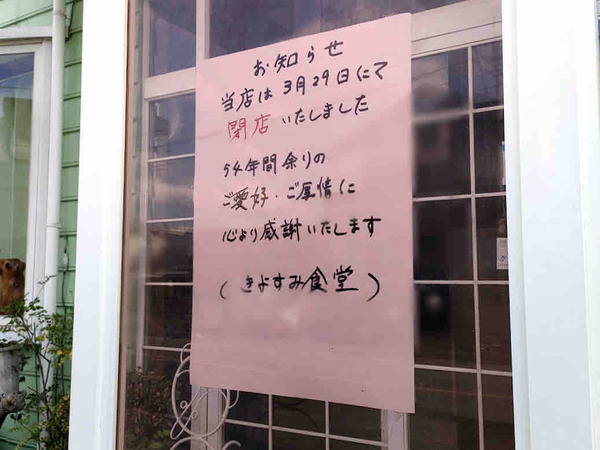 お知らせ
当店は3月29日にて
閉店いたしました
54年間余りの
ご愛好・ご厚情に
心より感謝いたします
(きよすみ食堂)